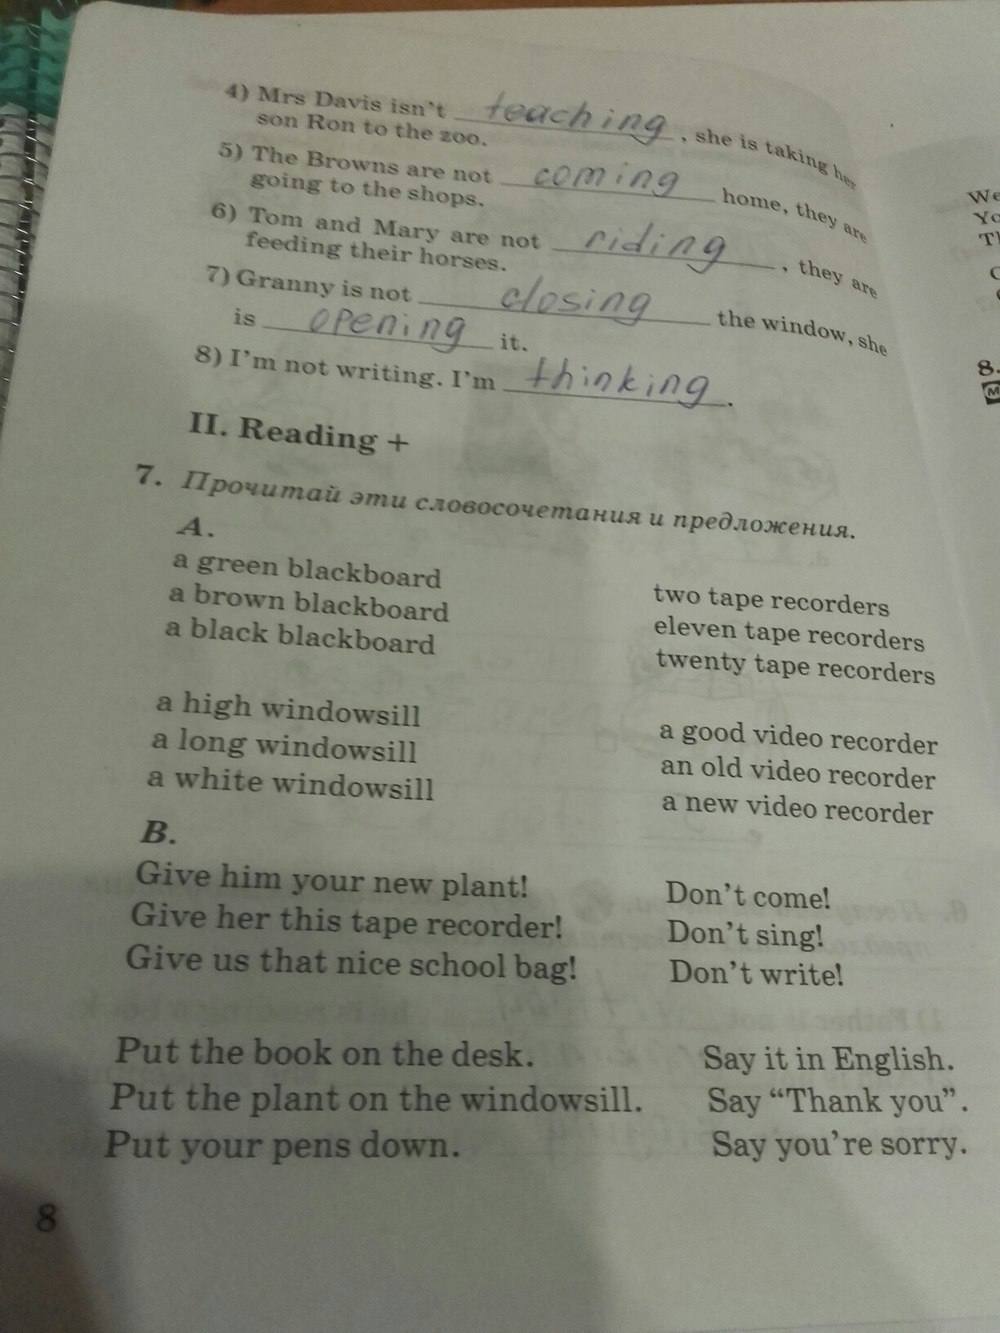 4) Mrs Davis isn't teaching, she is taking her
son Ron to the zoo.
5) The Browns are not coming home, they are
going to the shops.
6) Tom and Mary are not riding, they are
feeding their horses.
7) Granny is not closing the window, she
is opening it.
8) I'm not writing. I'm thinking.
II. Reading +
7. Прочитай эти словосочетания и предложения.
A.
a green blackboard
a brown blackboard
a black blackboard
two tape recorders
eleven tape recorders
twenty tape recorders
a high windowsill
a long windowsill
a white windowsill
a good video recorder
an old video recorder
a new video recorder
B.
Give him your new plant!
Give her this tape recorder!
Give us that nice school bag!
Don't come!
Don't sing!
Don't write!
Put the book on the desk.
Put the plant on the windowsill.
Put your pens down.
Say it in English.
Say “Thank you”.
Say you're sorry.
8
We
8.